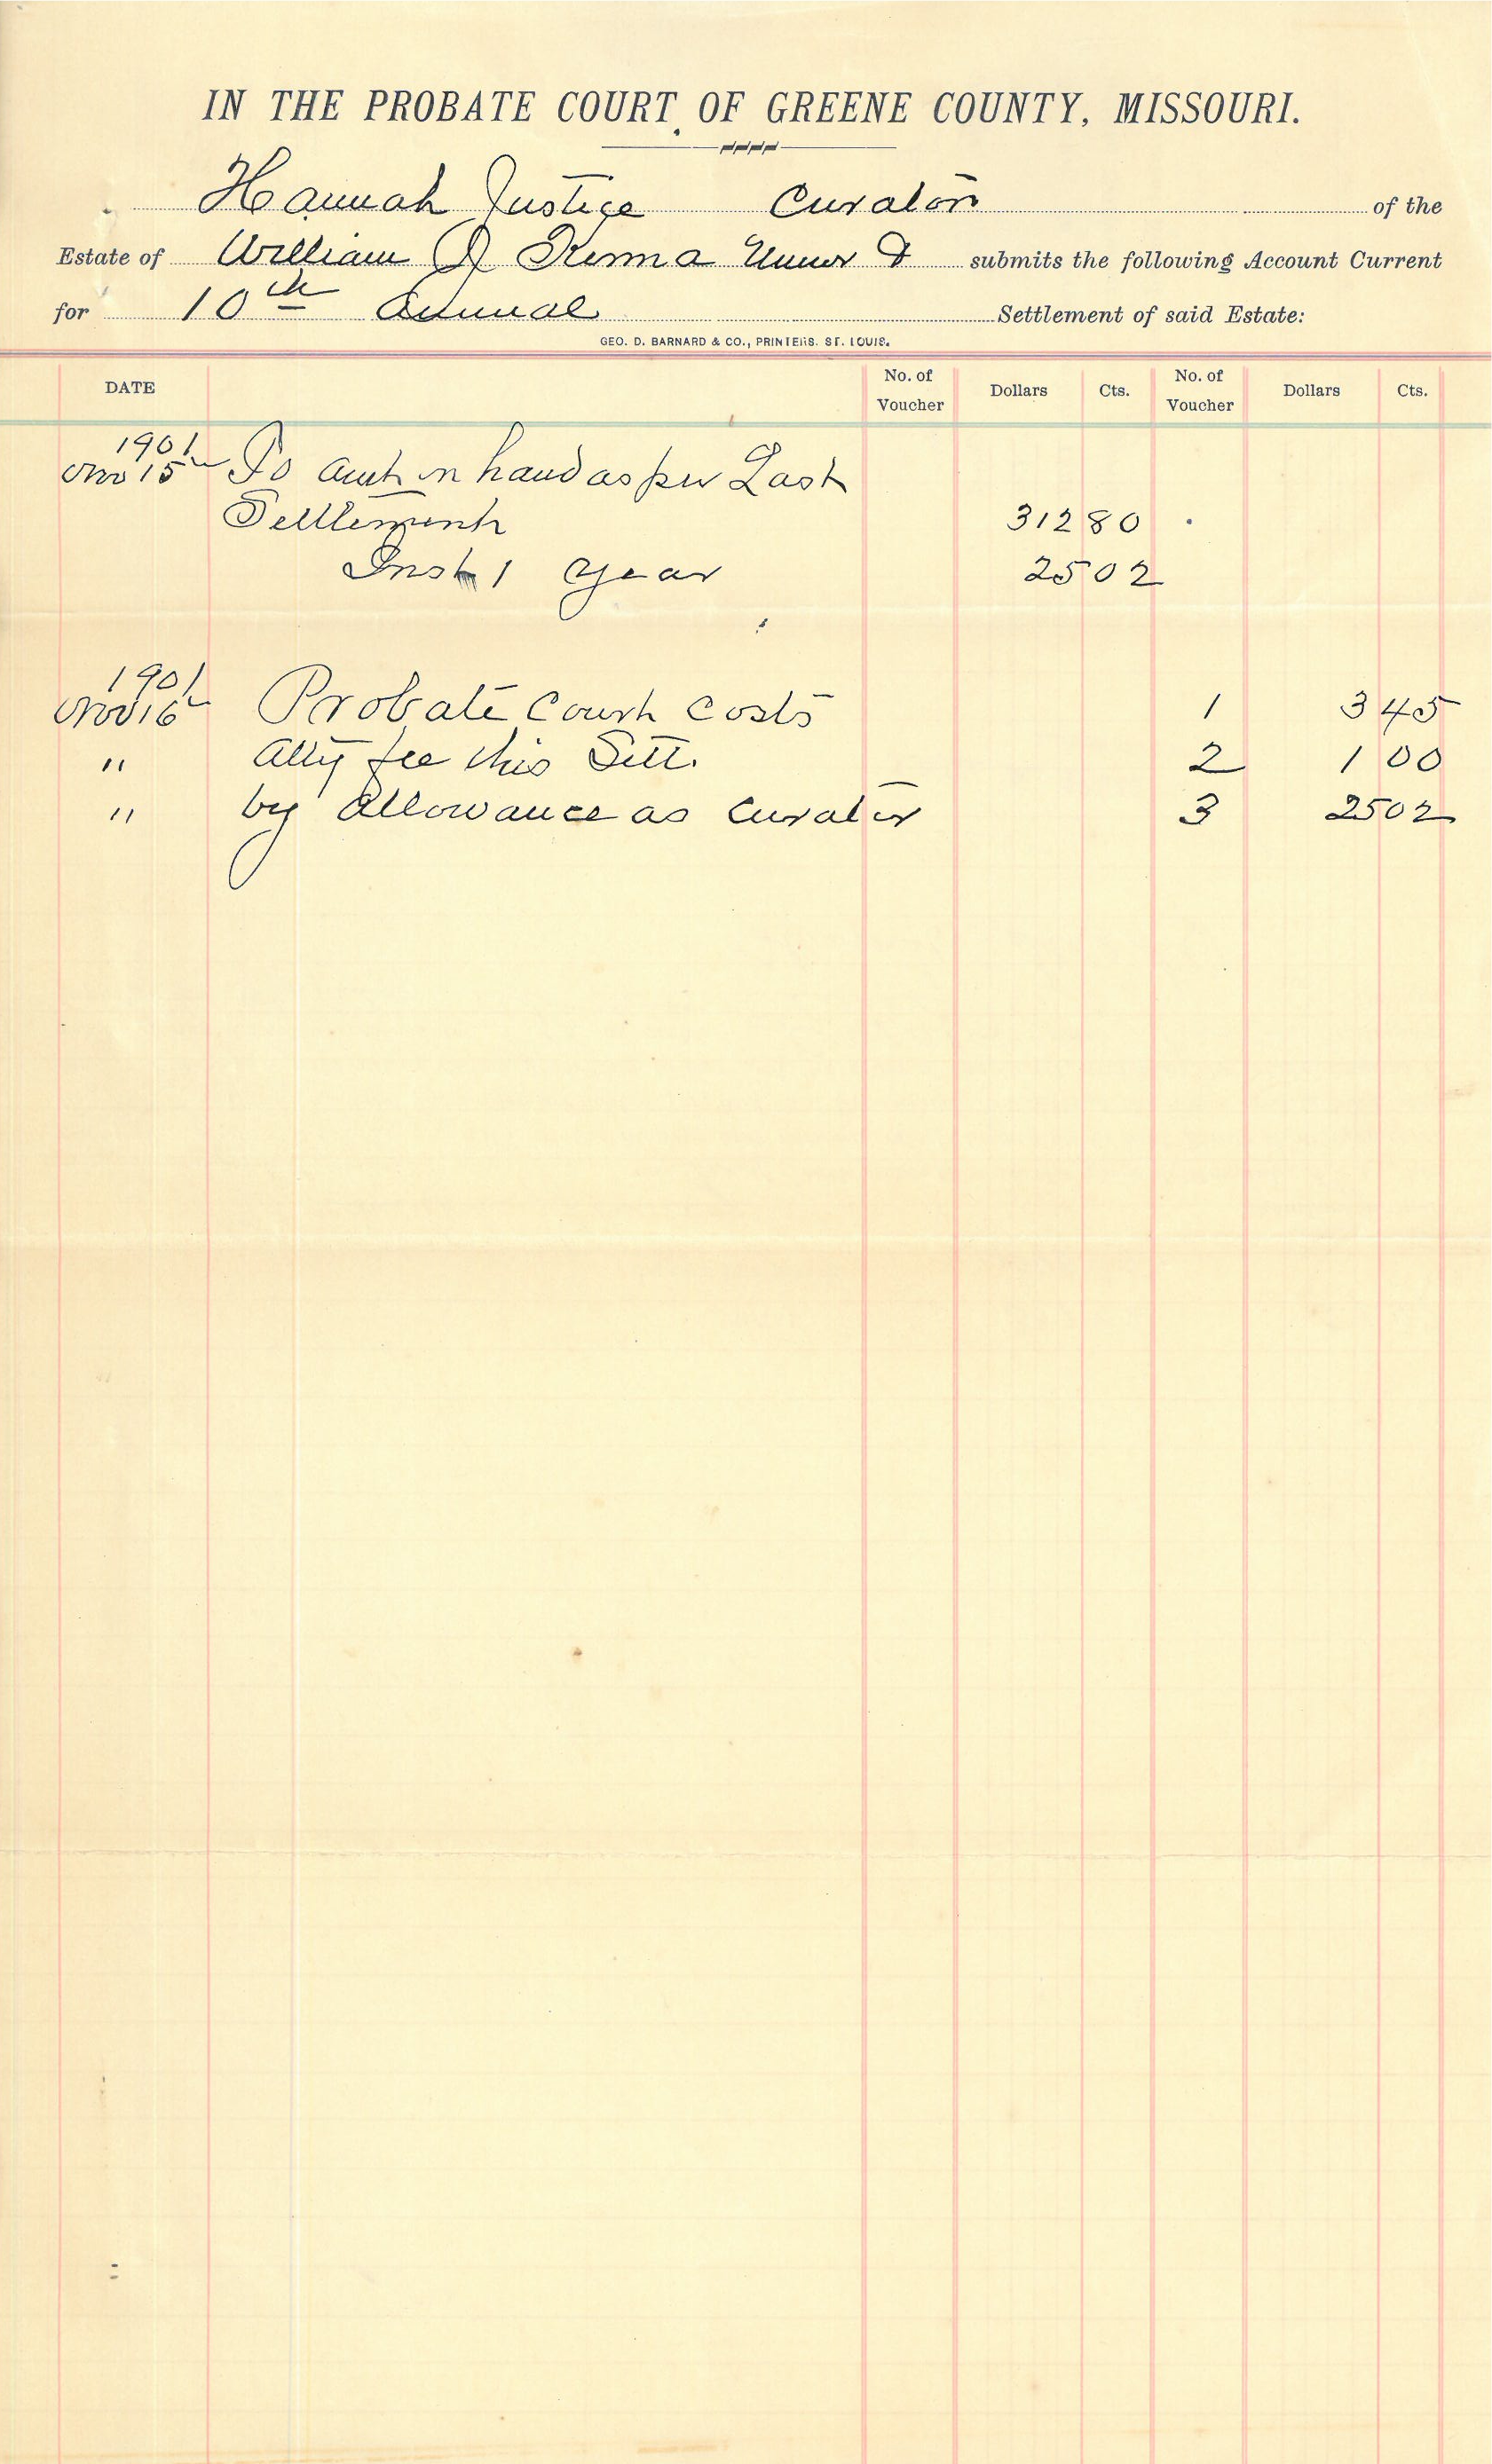 IN THE PROBATE COURT OF GREENE COUNTY, MISSOURI.
Hannah Justice Curator of the
Estate of William submits the following Account Current
for 10th Annual Settlement of said Estate:
GEO. D. BARNARD & CO., PRINTERS. ST. LOUIS.
DATE No. of Voucher Dollars Cts. No. of Voucher Dollars Cts.
1901
Nov 15 To amt on hand as per Last
Settlement 312 80
Inst 1 year 25 02
1901
Nov 16 Probate Court Costs 1 3 45
" Atty fee this Sett. 2 1 00
" by Allowance as Curator 3 25 02